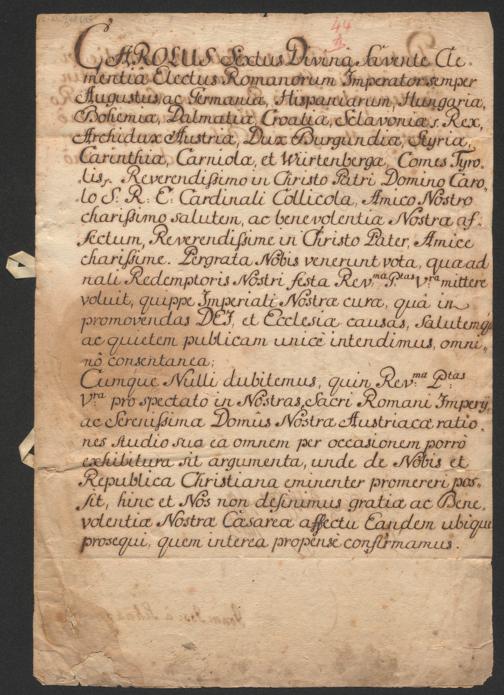 44
CAROLUS Sextus Divina favente Cle-
mentia Electus Romanorum Imperator semper
Augustus, ac Germaniæ, Hispaniarum, Hungariæ,
Bohemiæ, Dalmatiæ, Croatiæ, Sclavoniæq. Rex,
Archidux Austriæ, Dux Burgundiæ, Styriæ,
Carenthiæ, Carniolæ, et Würtenbergæ, Comes Tyro-
lis, Reverendissimo in Christo Patri Domino Caro-
lo S. R. E. Cardinali Collicola, Amico Nostro
charissimo salutem, ac benevolentiæ Nostræ af-
fectum, Reverendissime in Christo Pater, Amice
charissime. Pergrata Nobis venerunt vota, quæ ad
nali Redemptoris Nostri festa Rev:ma P:tas V:ra mittere
voluit, quippe Imperiali Nostræ curæ, quâ in
promovendas DEI, et Ecclesiæ causas, salutemq;
ac quietem publicam unice intendimus, omni-
nò consentanea;
Cumque Nulli dubitemus, quin Rev:ma P:tas
V:ra pro spectato in Nostras, Sacri Romani Imperij,
ac Serenissimæ Domus Nostræ Austriacæ ratio-
nes studio suo ea omnem per occasionem porrò
exhibitura sit argumenta, unde de Nobis et
Republica Christiana eminenter promereri pos-
sit, hinc et Nos non desinimus gratiæ ac Bene-
volentiæ Nostræ Cæsareæ affectu Eandem ubique
prosequi, quem interea propensè confirmamus.